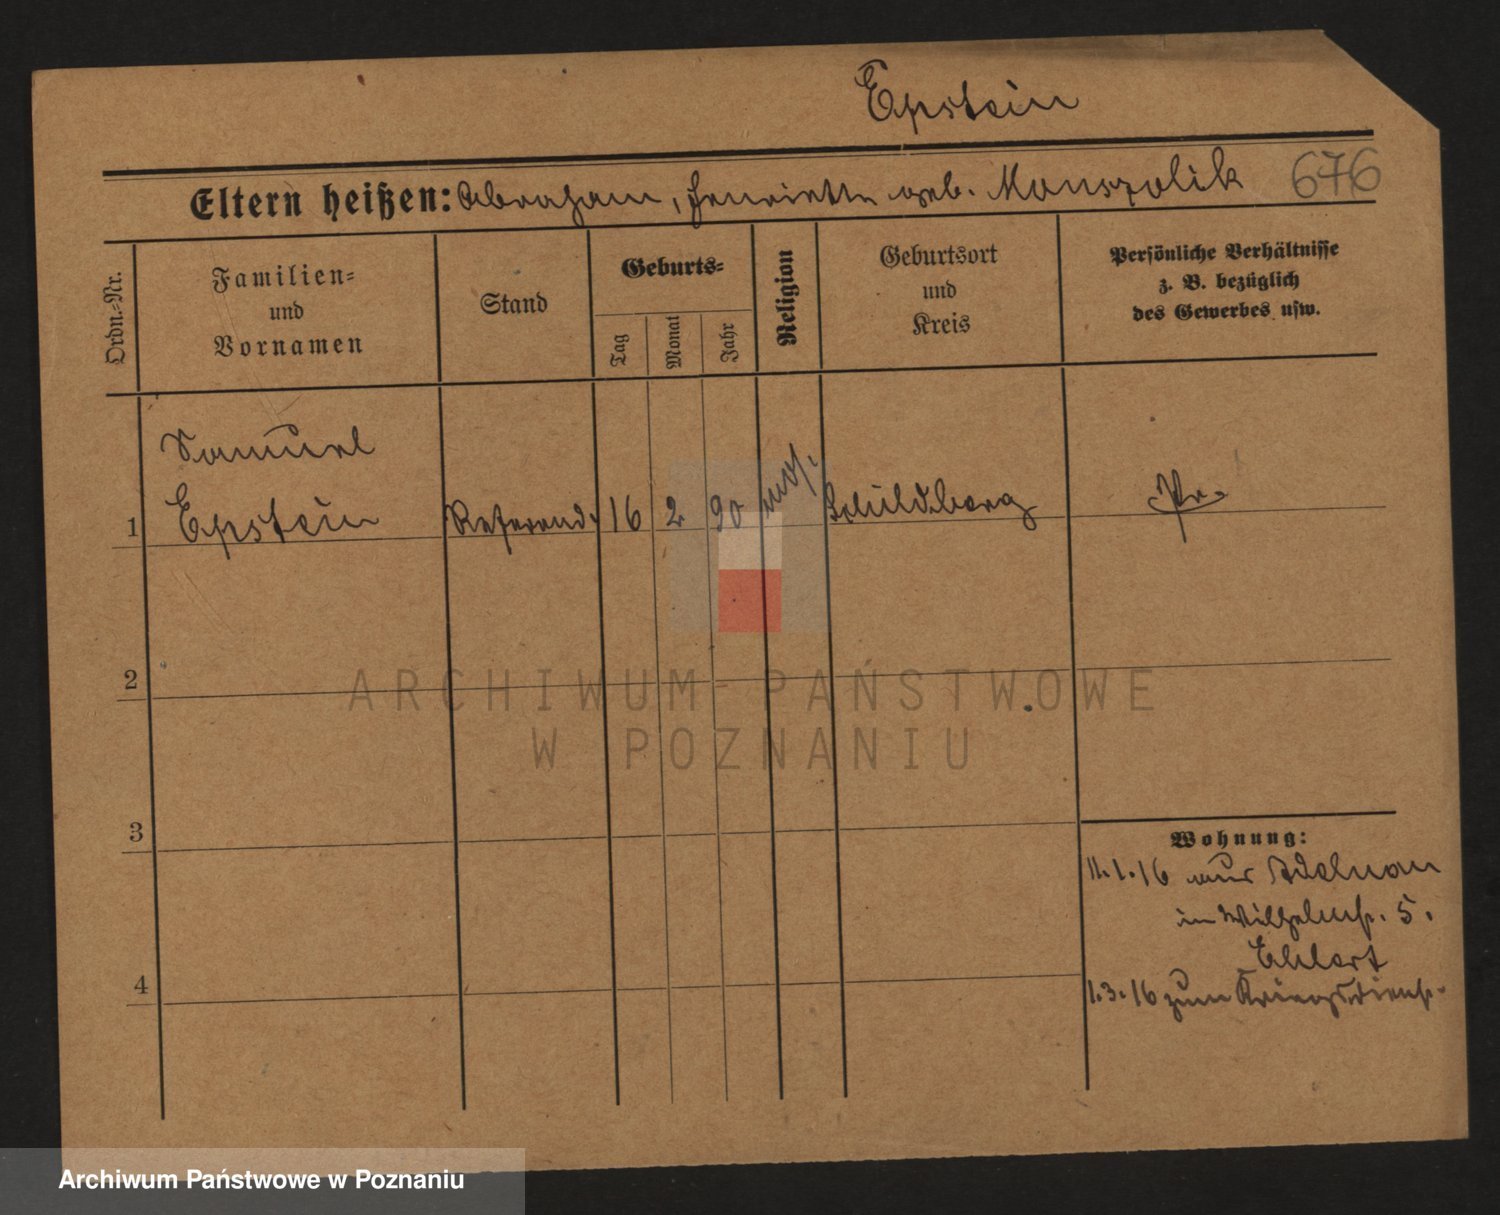 Epstein
Eltern heißen: Abraham, Henriette geb. Monszolik 676
Ordn.-Nr.
Familien-
und
Vornamen
Stand
Geburts-
Tag
Monat
Jahr
Religion
Geburtsort
und
Kreis
Persönliche Verhältnisse
z. B. bezüglich
des Gewerbes usw.
Samuel
1 Epstein Referend. 16 2 90 mos. Schildberg Pr.
2
3
4
Wohnung:
11.1.16 aus Adelnau
in Wilhelmstr. 5.
Ehlert
1.3.16 zum Kriegsdienst.
ARCHIWUM PAŃSTWOWE
W POZNANIU
Archiwum Państwowe w Poznaniu